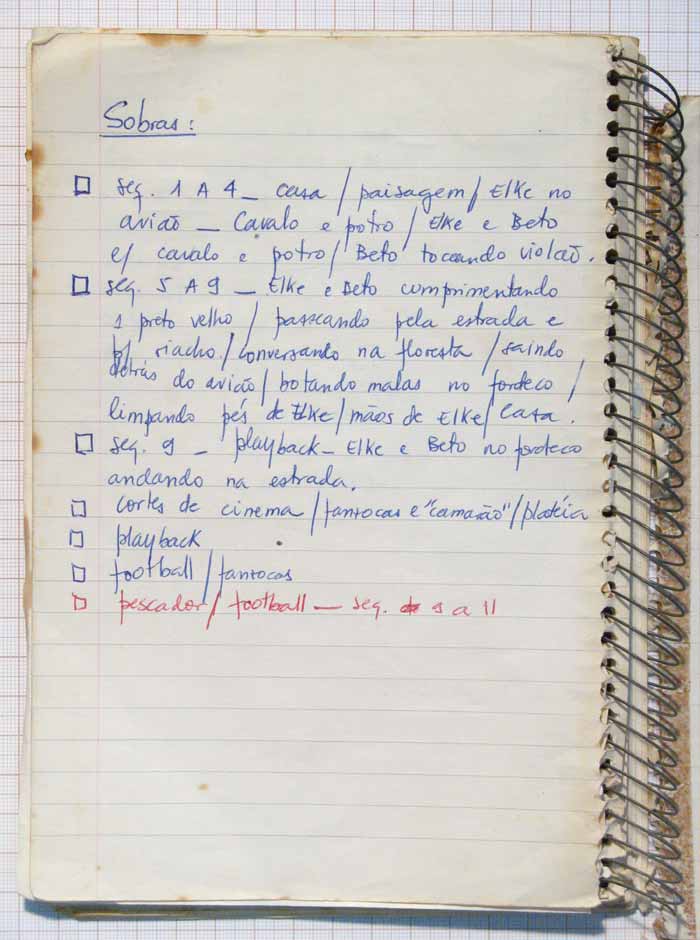 Sobras:
seq. 1 A 4 _ casa / paisagem / Elke no
avião _ Cavalo e potro / Elke e Beto
c/ cavalo e potro / Beto tocando violão.
seq. 5 A 9 _ Elke e Beto comprimentando
1 preto velho / passeando pela estrada e
p/ riacho / conversando na floresta / saindo
detrás do avião / botando malas no fordeco /
limpando pés de Elke / mãos de Elke / Casa.
seq. 9 _ playback _ Elke e Beto no
andando na estrada.
cortes de cinema / fantocas e "camarão" / platéia
playback
football / fantocas
pescador / football — seq. 9 a 11